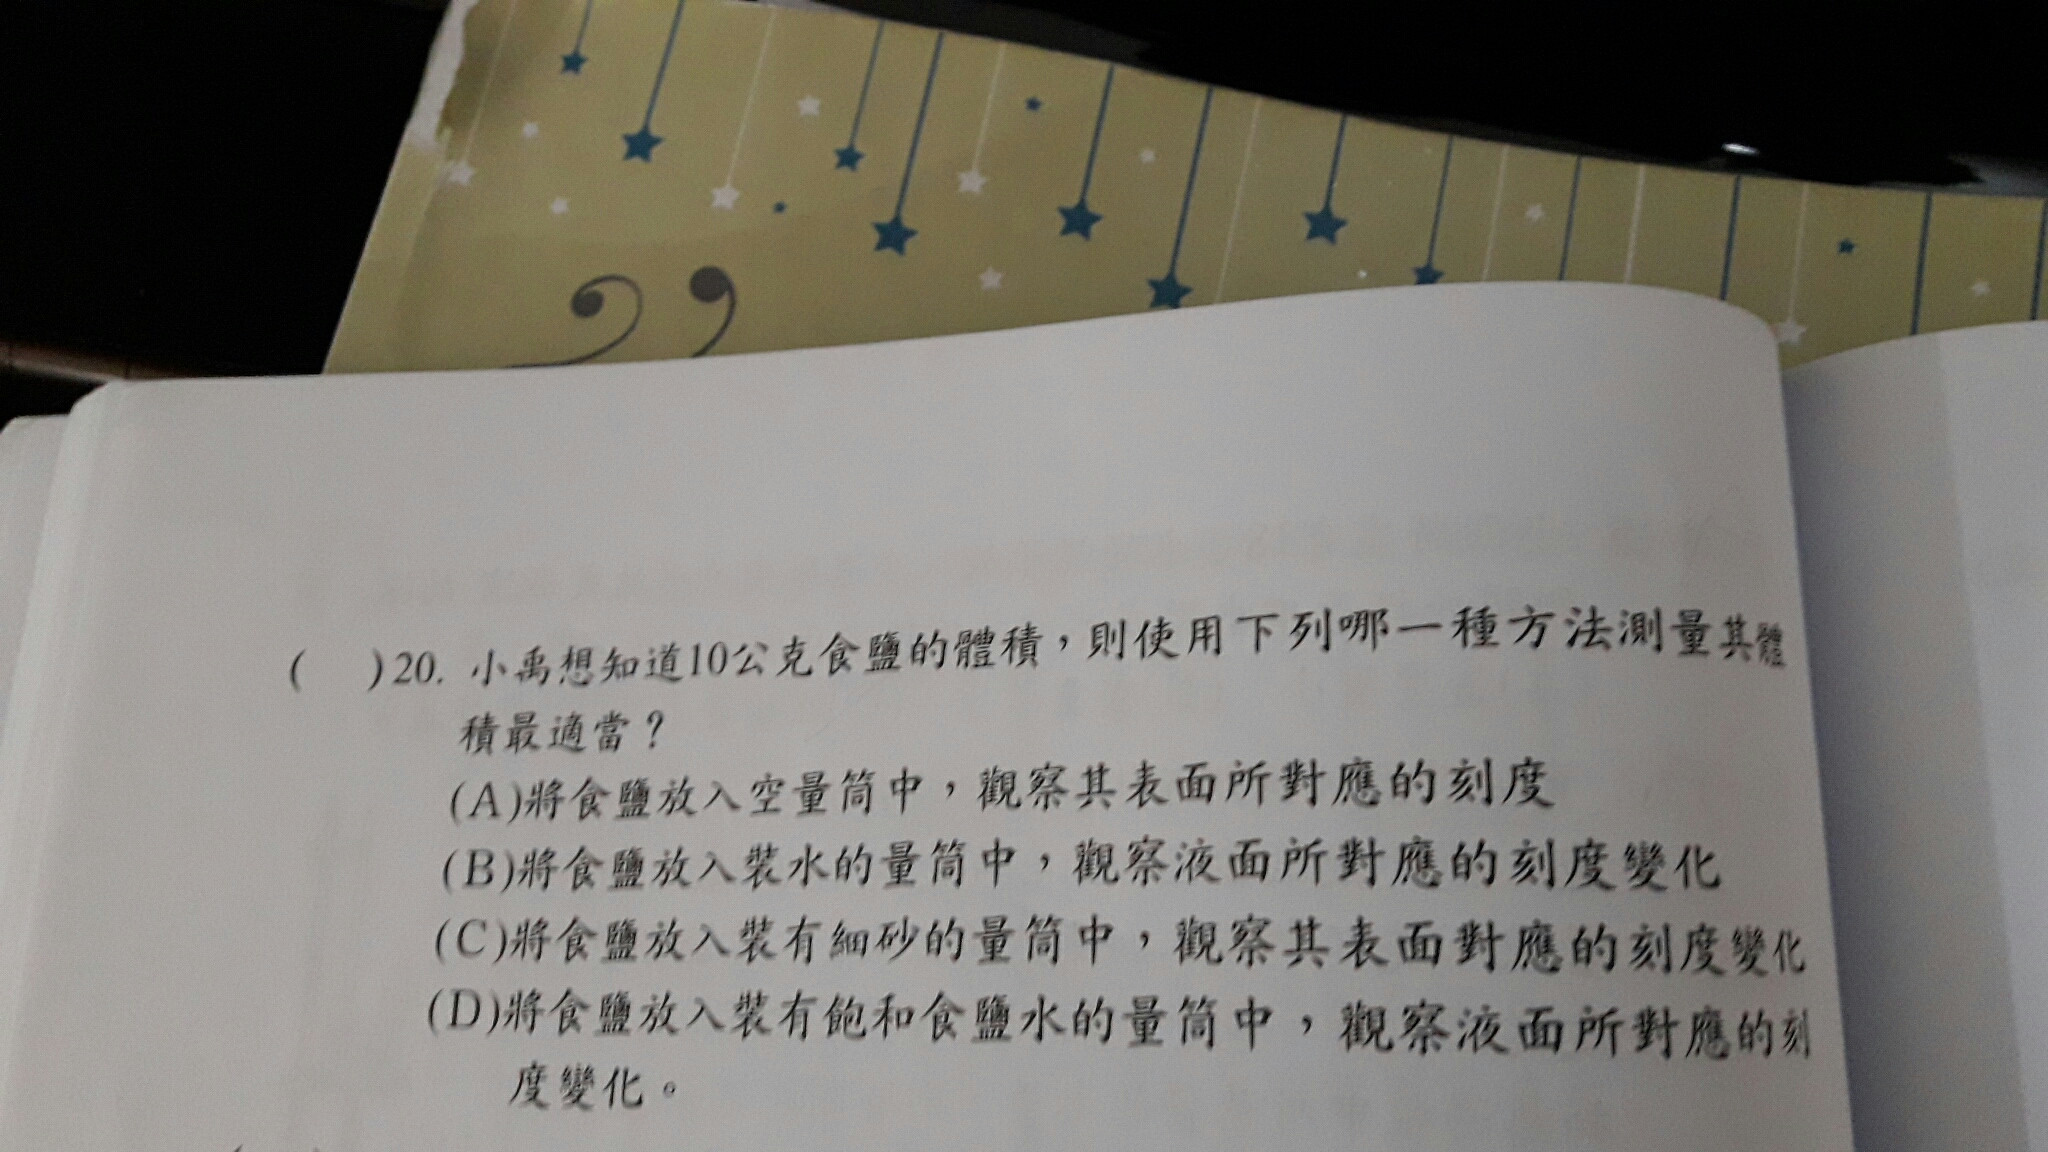 (　)20. 小禹想知道10公克食鹽的體積，則使用下列哪一種方法測量其體
積最適當？
(A)將食鹽放入空量筒中，觀察其表面所對應的刻度
(B)將食鹽放入裝水的量筒中，觀察液面所對應的刻度變化
(C)將食鹽放入裝有細砂的量筒中，觀察其表面對應的刻度變化
(D)將食鹽放入裝有飽和食鹽水的量筒中，觀察液面所對應的刻
度變化。